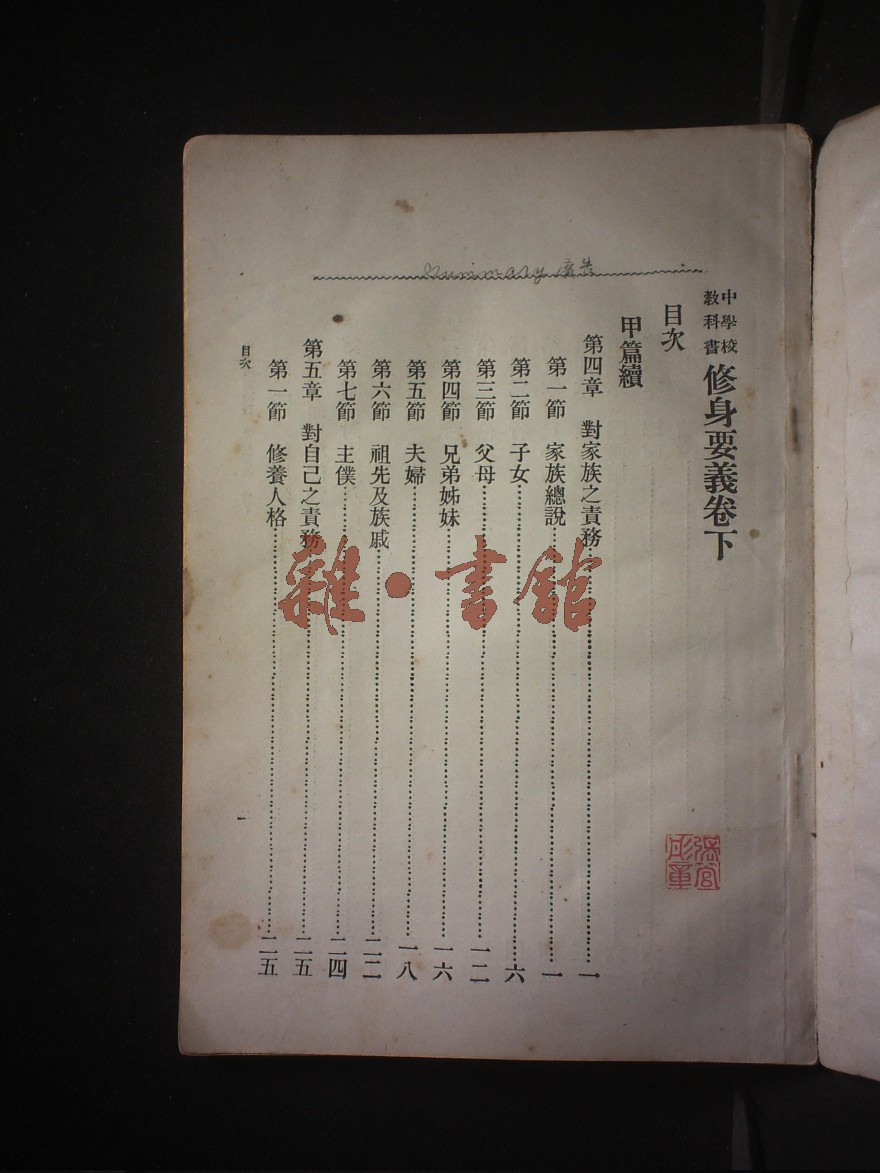 Summary
中學校
教科書
修身要義卷下
目次
甲篇續
第四章 對家族之責務……一
第一節 家族總說……一
第二節 子女……六
第三節 父母……一二
第四節 兄弟姊妹……一六
第五節 夫婦……一八
第六節 祖先及族戚……二二
第七節 主僕……二四
第五章 對自己之責務……二五
第一節 修養人格……二五
目次
一
雜·書館